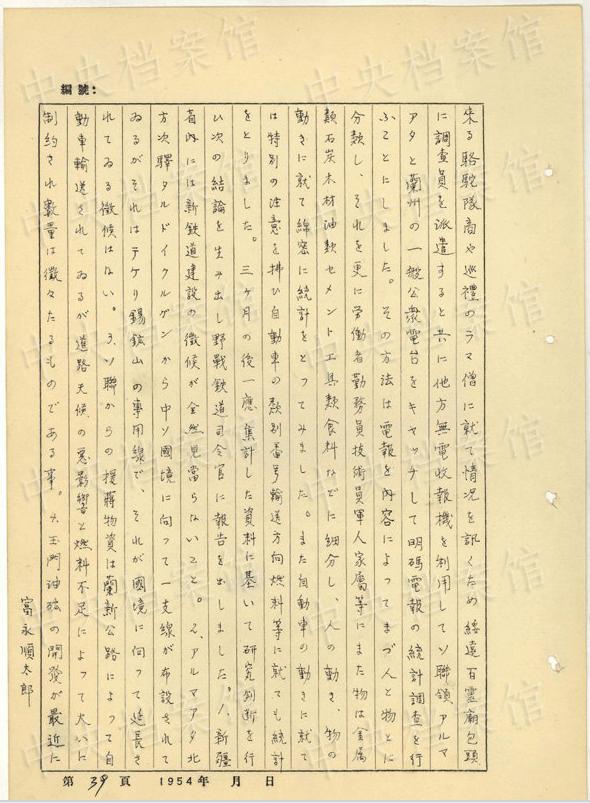 編號:
来る駱駝隊商や巡禮のラマ僧に就て情况を訊くため綏遠百靈廟包頭
に調査員を派遣すると共に他方無電收報機を利用してソ聯領アルマ
アタと蘭州の一般公衆電台をキャッチして明碼電報の統計調査を行
ふことにしました。その方法は電報を內容によってまづ人と物とに
分類し、それを更に労働者勤務員技術員軍人家屬等にまた物は金属
類石炭木材油類セメント工具類食料などに細分し、人の動き、物の
動きに就て綿密に統計をとつてみました。また自動車の動きに就て
は特別の注意を拂ひ自動車の類別番号輸送方向燃料等に就ても統計
をとりました。三ヶ月の後一應集計した資料に基いて研究判断を行
ひ次の結論を生み出し野戰鉄道司令官に報告を出しました。1、新疆
省內には新鉄道建設の徴候が全然見當らないこと。2、アルマアタ北
方次驛タルドイクルゲンから中ソ國境に向って一支線が布設されて
ゐるがそれはテケリ錫鉱山の專用線で、それが國境に向って延長さ
れてゐる徴候はない。3、ソ聯からの援蔣物資は蘭新公路によって自
動車輸送されてゐるが道路天候の悪影響と燃料不足によって大いに
制約され数量は微々たるものである事。4、玉門油砿の開發が最近に
富永順太郎
第39頁 1954年 月 日
中央档案馆